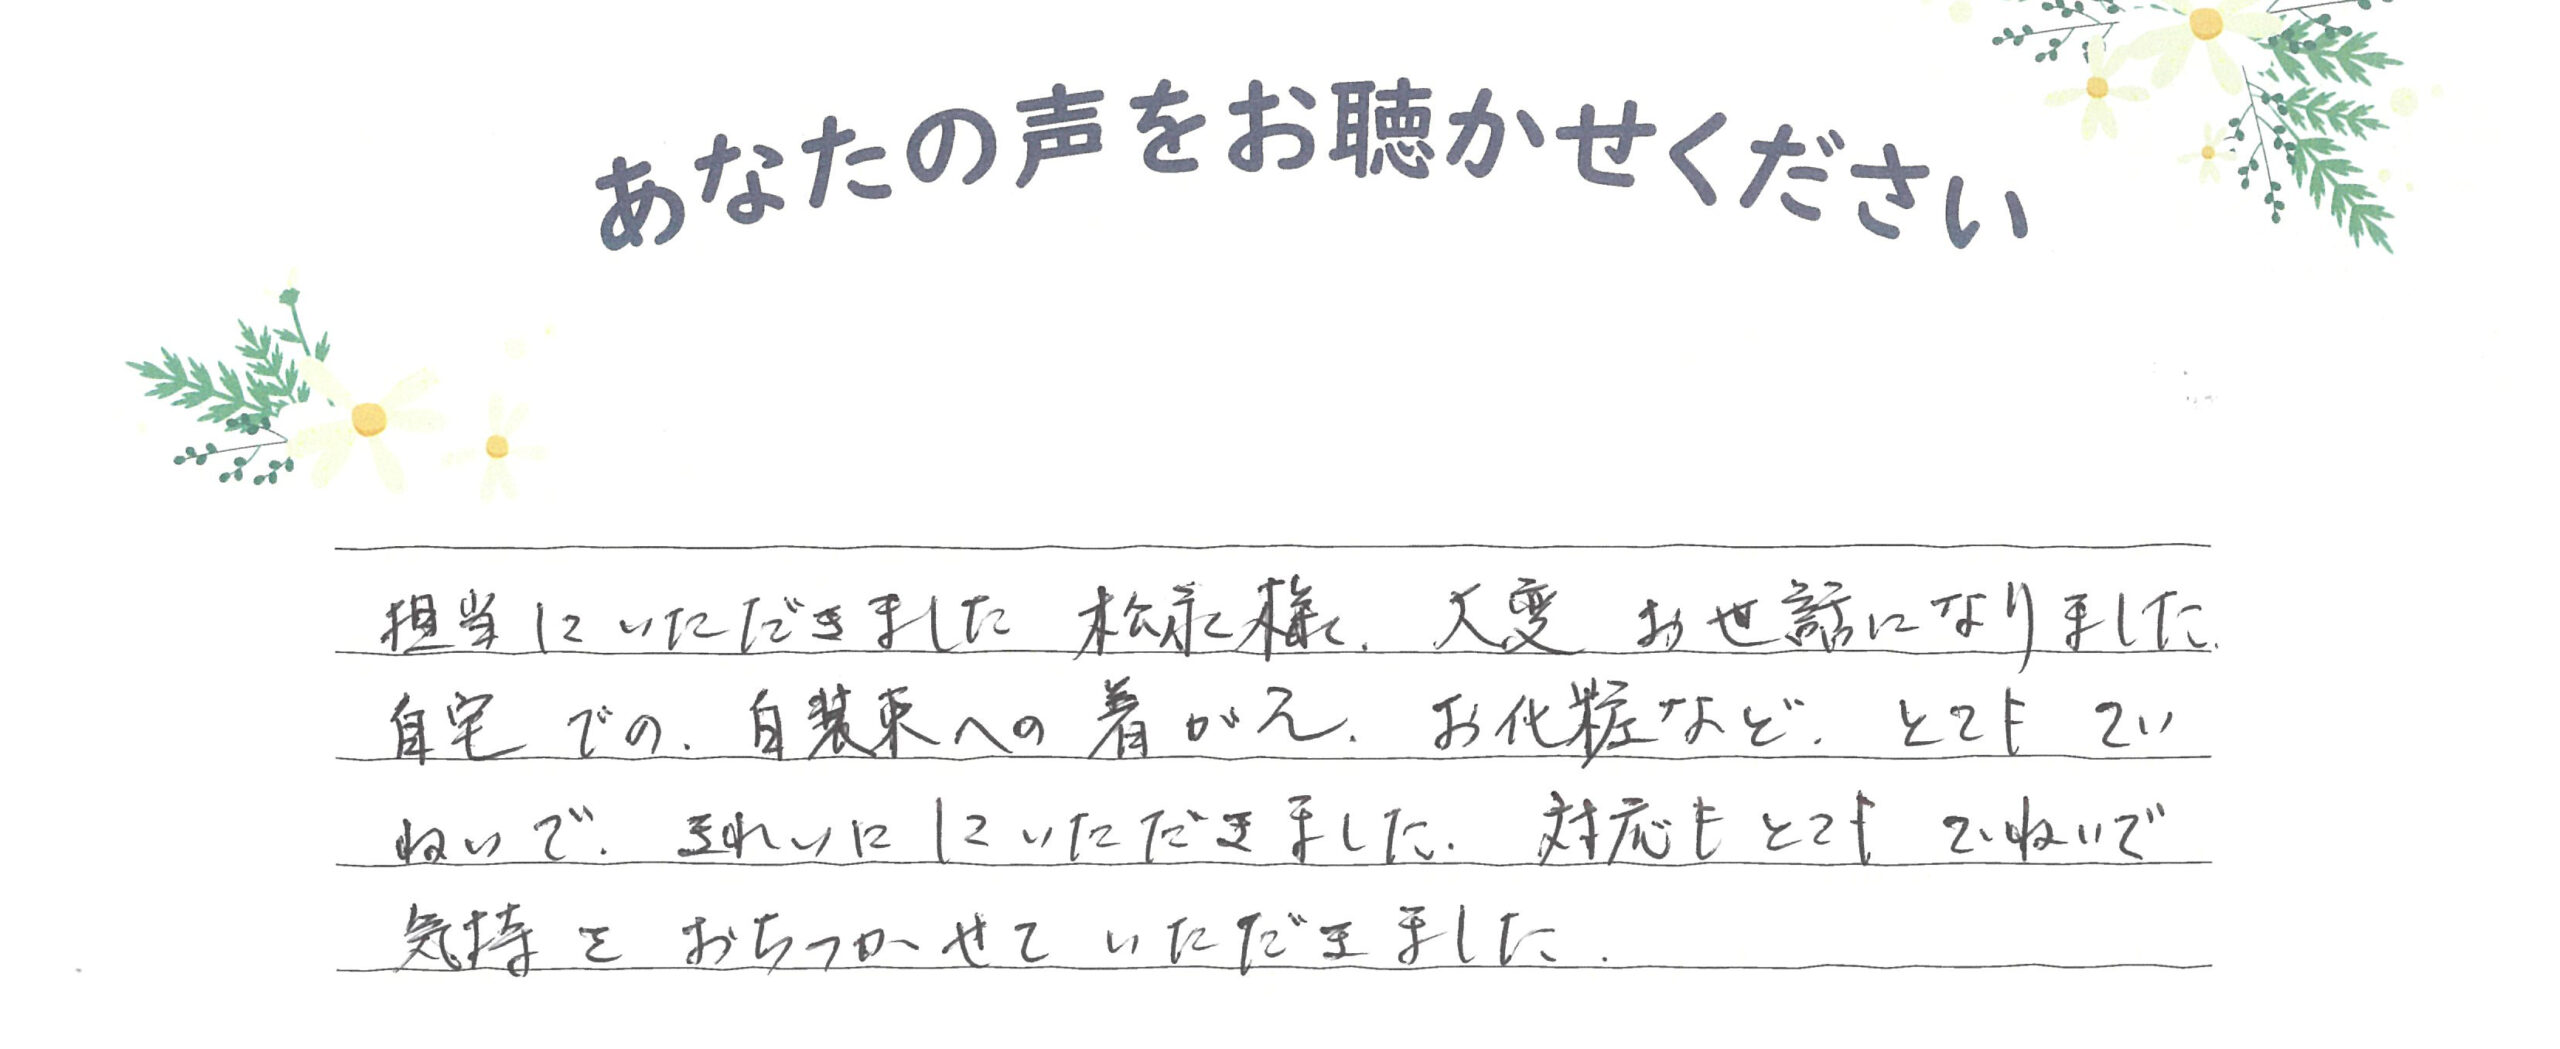 あなたの声をお聴かせください
担当にいただきました 松永様. 大変 お世話になりました.
自宅 での. 白装束への着がえ. お化粧など. とても てい
ねいで. きれいに にいただきました. 対応もとても ていねいで
気持を おちつかせて いただきました.